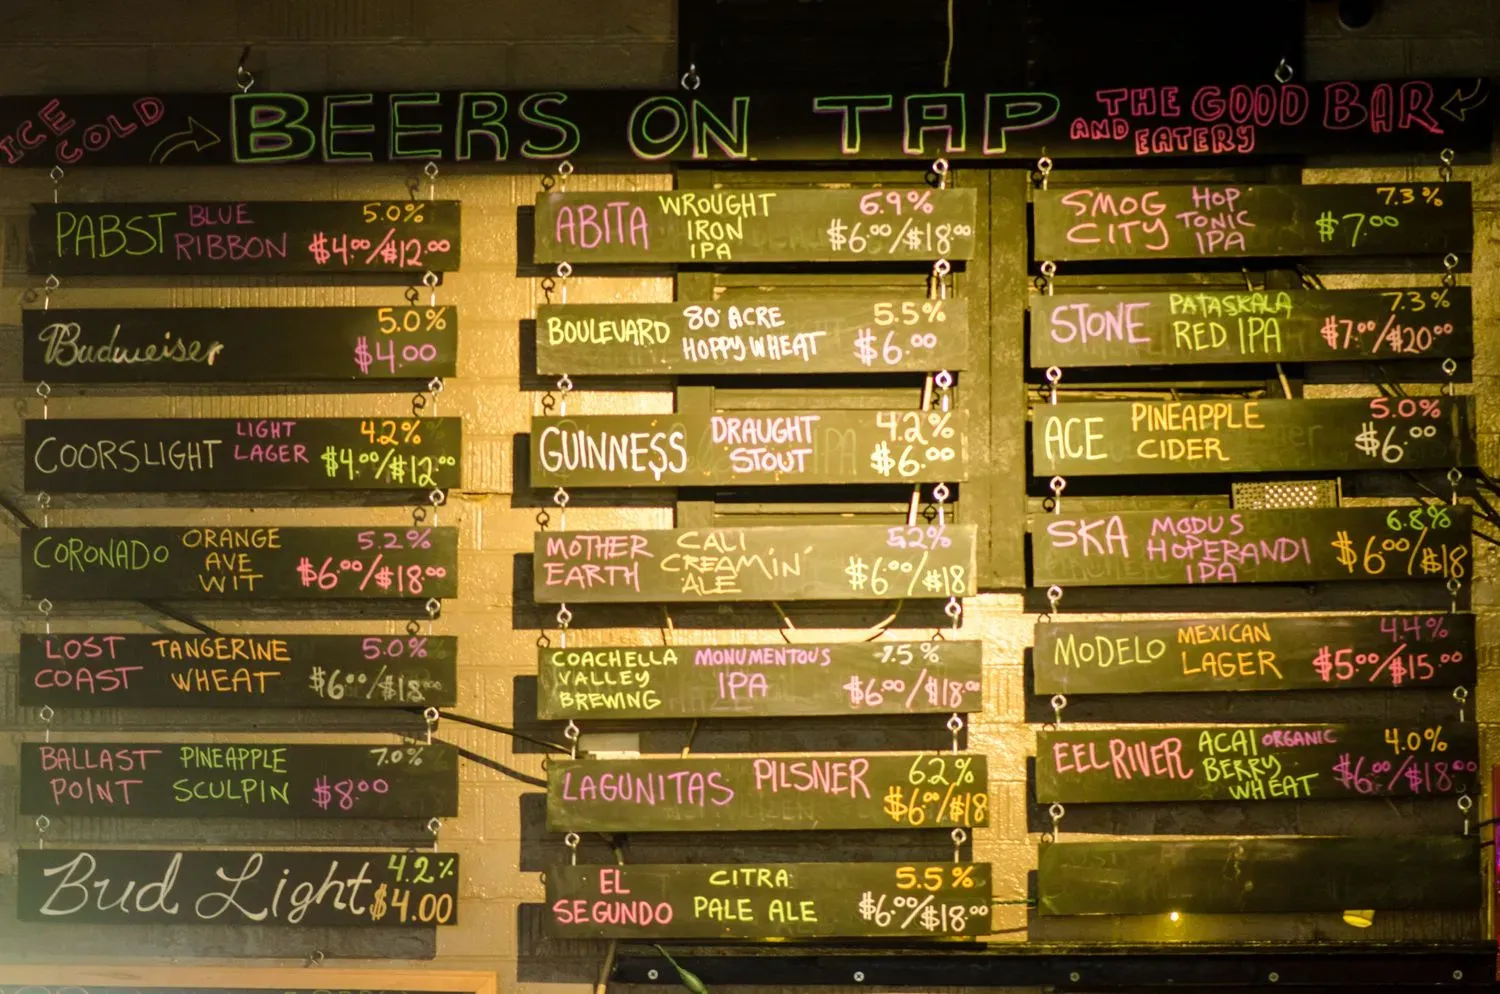 ICE COLD BEERS ON TAP THE GOOD BAR AND EATERY
PABST BLUE RIBBON 5.0% $4.00/$12.00
Budweiser 5.0% $4.00
COORSLIGHT LIGHT LAGER 4.2% $4.00/$12.00
CORONADO ORANGE AVE WIT 5.2% $6.00/$18.00
LOST COAST TANGERINE WHEAT 5.0% $6.00/$18.00
BALLAST POINT PINEAPPLE SCULPIN 7.0% $8.00
Bud Light 4.2% $4.00
ABITA WROUGHT IRON IPA 6.9% $6.00/$18.00
BOULEVARD 80 ACRE HOPPY WHEAT 5.5% $6.00
GUINNE$S DRAUGHT STOUT 4.2% $6.00
MOTHER EARTH CALI CREAMIN' ALE 5.2% $6.00/$18
COACHELLA VALLEY BREWING MONUMENTOUS IPA 7.5% $6.00/$18.00
LAGUNITAS PILSNER 6.2% $6.00/$18
EL SEGUNDO CITRA PALE ALE 5.5% $6.00/$18.00
SMOG CITY HOP TONIC IPA 7.3% $7.00
STONE PATASKALA RED IPA 7.3% $7.00/$20.00
ACE PINEAPPLE CIDER 5.0% $6.00
SKA MODUS HOPERANDI IPA 6.8% $6.00/$18
MODELO MEXICAN LAGER 4.4% $5.00/$15.00
EEL RIVER ACAI BERRY WHEAT ORGANIC 4.0% $6.00/$18.00